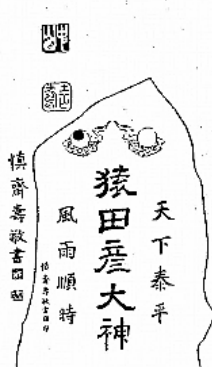 天下泰平
猿田彦大神
風雨順時
慎齋壽敬書